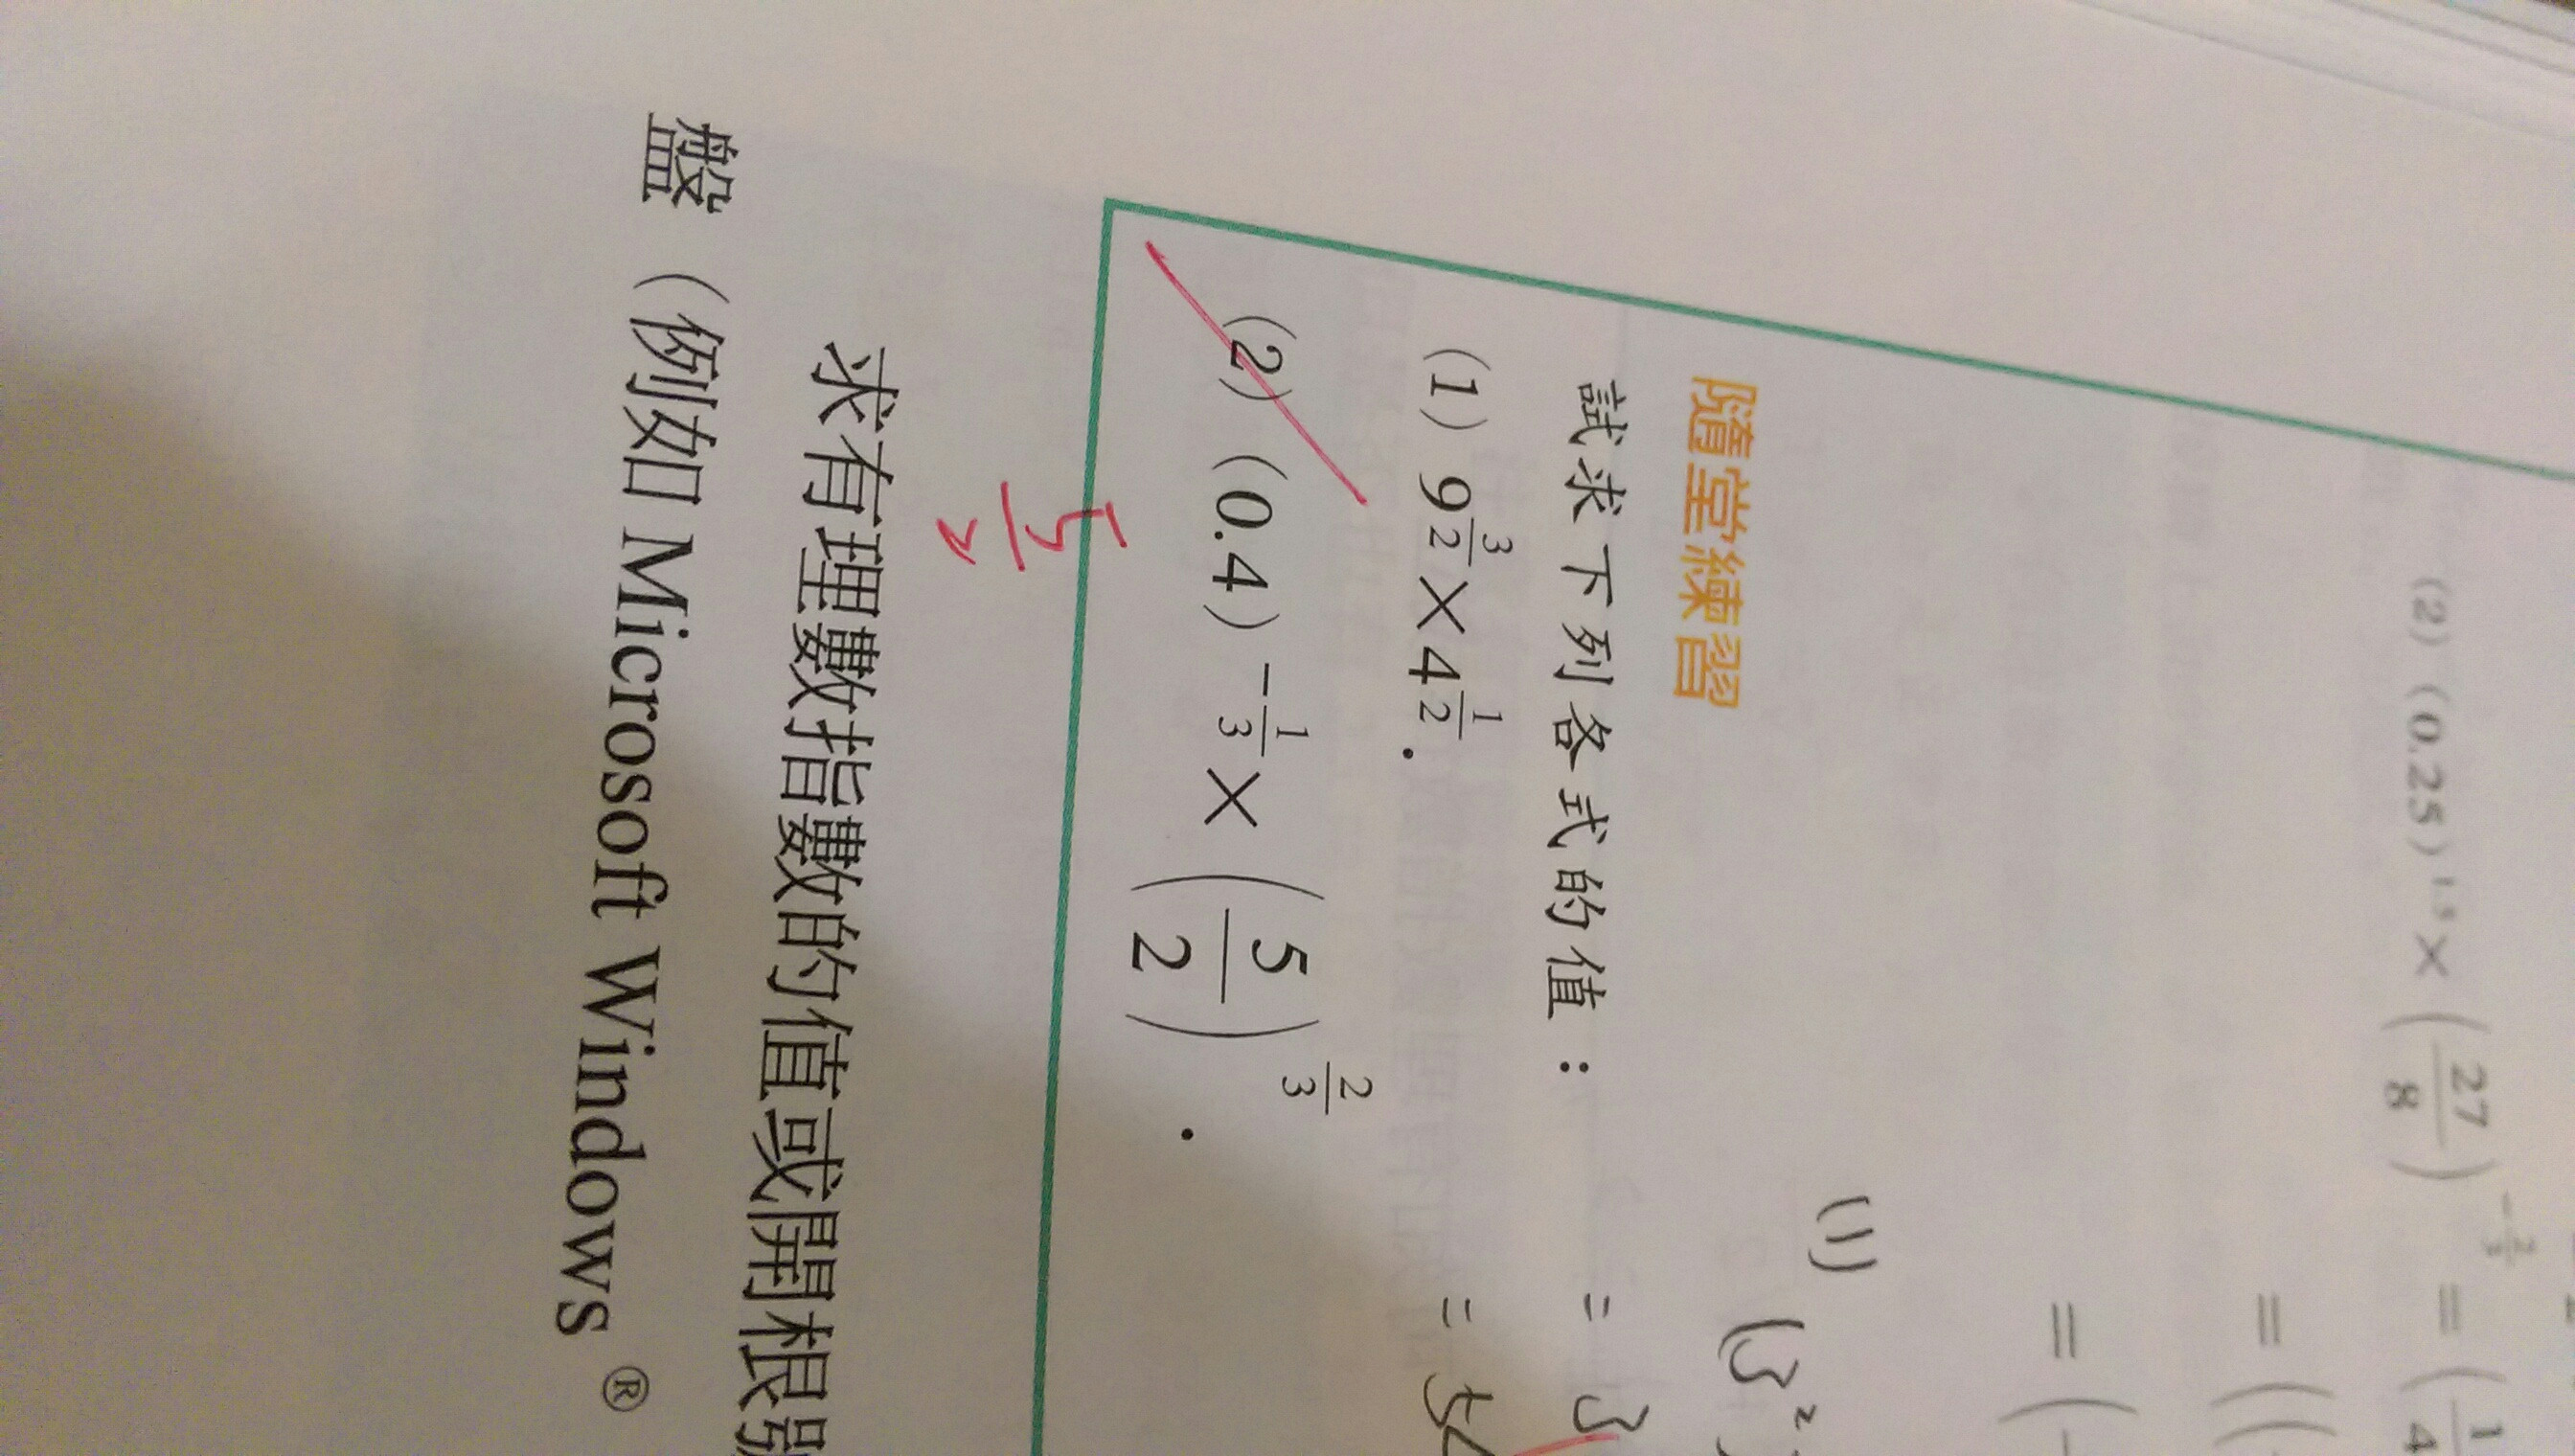 (2) (0.25)^{1.5} × (27/8)^{-2/3} = (1/4
= ((
= (-
隨堂練習
(1) (3²
試求下列各式的值：
= 3
(1) 9^{3/2} × 4^{1/2}.
= 54
(2) (0.4)^{-1/3} × (5/2)^{2/3}.
5/2
求有理數指數的值或開根號
盤（例如 Microsoft Windows ®